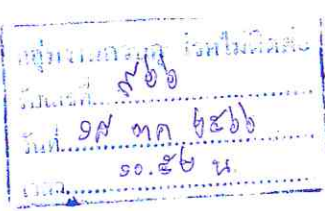 โรคไม่ติดต่อ
รับเลขที่ ๙๖๖
วันที่ ๑๙ ตค ๒๕๖๖
เวลา ๑๐.๕๒ น.